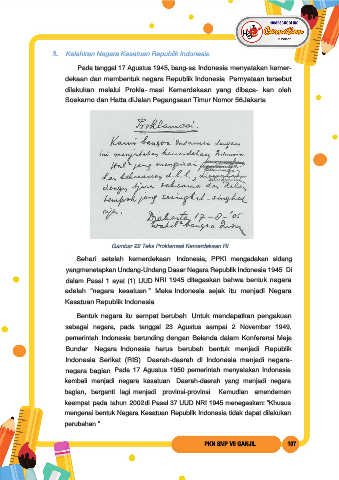 1. Kelahiran Negara Kesatuan Republik Indonesia
Pada tanggal 17 Agustus 1945, bang-sa Indonesia menyatakan kemer-
dekaan dan membentuk negara Republik Indonesia Pernyataan tersebut
dilakukan melalui Prokla- masi Kemerdekaan yang dibaca- kan oleh
Soekarno dan Hatta diJalan Pegangsaan Timur Nomor 56Jakarta
Proklamasi.
Kami bangsa Indonesia dengan
ini menjatakan kemerdekaan Indonesia.
Hal2 jang mengenai
kekoeasaan d.l.l.,
dengan tjara saksama dan dalam
tempoh jang sesingkat-singkat
nja.
Djakarta 17-8-'05
Wakil2 bangsa Indon.
Gambar 22 Teks Proklamasi Kemerdekaan RI
Sehari setelah kemerdekaan Indonesia, PPKI mengadakan sidang
yangmenetapkan Undang-Undang Dasar Negara Republik Indonesia 1945 Di
dalam Pasal 1 ayat (1) UUD NRI 1945 ditegaskan bahwa bentuk negara
adalah "negara kesatuan " Maka Indonesia sejak itu menjadi Negara
Kesatuan Republik Indonesia
Bentuk negara itu sempat berubah Untuk mendapatkan pengakuan
sebagai negara, pada tanggal 23 Agustus sampai 2 November 1949,
pemerintah Indonesia berunding dengan Belanda dalam Konferensi Meja
Bundar Negara Indonesia harus berubah bentuk menjadi Republik
Indonesia Serikat (RIS) Daerah-daerah di Indonesia menjadi negara-
negara bagian Pada 17 Agustus 1950 pemerintah menyatakan Indonesia
kembali menjadi negara kesatuan Daerah-daerah yang menjadi negara
bagian, berganti lagi menjadi provinsi-provinsi Kemudian amendemen
keempat pada tahun 2002di Pasal 37 UUD NRI 1945 menegaskan: "Khusus
mengenai bentuk Negara Kesatuan Republik Indonesia tidak dapat dilakukan
perubahan "
PKN SMP VII GANJIL 107